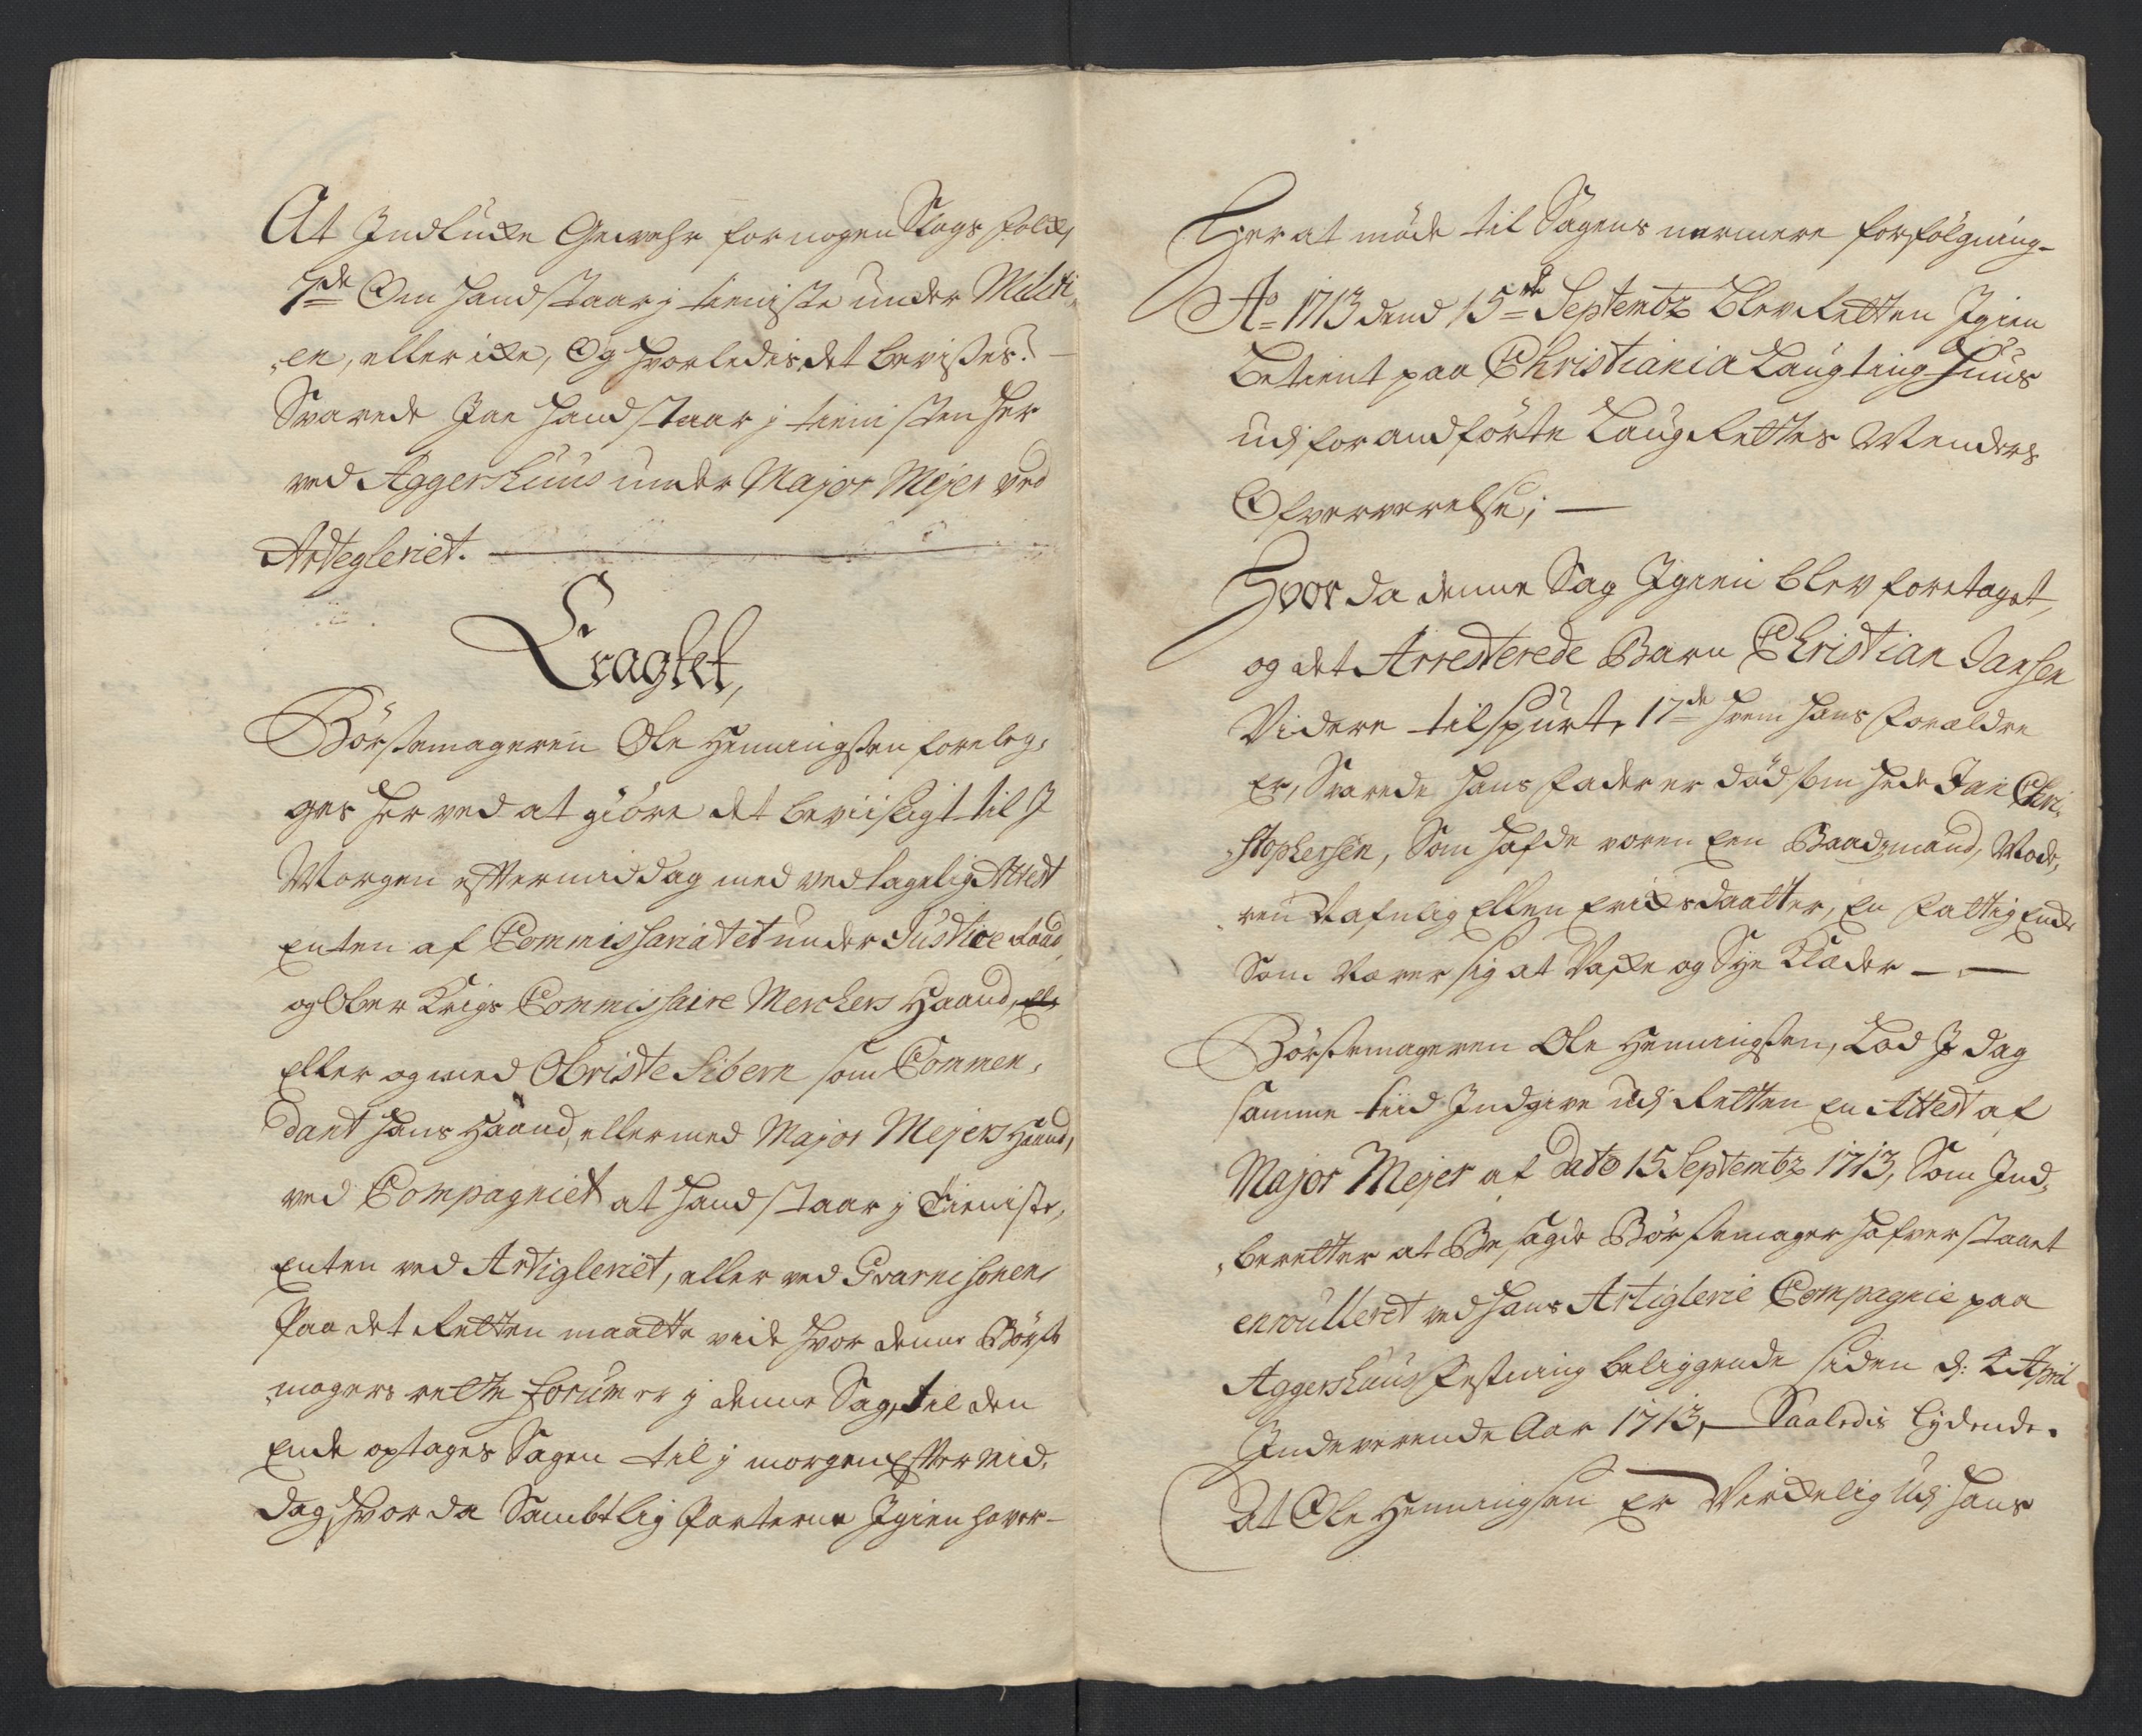 At Indlucke Gewehr for nogen Slags folck,
7de Om hand staar j tieniste under Militi-
en, eller icke, Og hvorledis det beviises?
Svarede Jae hand staar j tienisten her
ved Aggershuus under Major Mejer ved
Artegleriet.
Eragtet,
Börstemageren Ole Henningsen foreleg-
ges her ved at giöre det beviisligt til J
Morgen eftermiddag med vedtagelig Attest
Enten af Commissariatet under Justice Raad
og Ober Krigs Commissaire Merckers Haand,
Eller og med Obriste Sibern som Commen-
dant hans Haand, eller med Major Mejers Haand,
ved Compagniet at hand staar j Tieniste,
Enten ved Artigleriet, eller ved Gvarnisonen,
Paa det Retten maatte vide hvor denne Börste
magers rette forum er j denne Sag, til den
Ende optages Sagen til j morgen Eftermid-
dag, hvor da Sambtlig Parterne Igien haver
Her at möde til Sagens nermere forfölgning
Ao 1713 dend 15de Septembr Blev Retten Igien
Betient paa Christiania Laugting Huus
udj forandförte Laug Rettes Menders
Ofververelse;
Hvor da denne Sag Igien blev foretaget,
og det Arresterede Barn Christian Jansen
Videre tilspurt, 17de hvem hans forældre
Er, Svarede hans fader er död som hede Jan Chri-
stophersen, Som hafde voren Een Baadzmand, Mode-
ren Nafnlig Ellen Ericksdaatter, En fattig Encke
Som Nærer sig at Vaske og Sye Klæder
Börstemageren Ole Henningsen, Lod J dag
samme tiid Indgive udj Retten En Attest af
Major Mejer af Dato 15 Septembr 1713, Som Ind-
beretter at Besagde Börstemager hafver staaet
enroulleret ved hans Artiglerie Compagnie paa
Aggershuus festning beliggende siden d: 4 April
Indeverende Aar 1713, Saaledis Lydende.
At Ole Henningsen Er Virckelig Udj hans